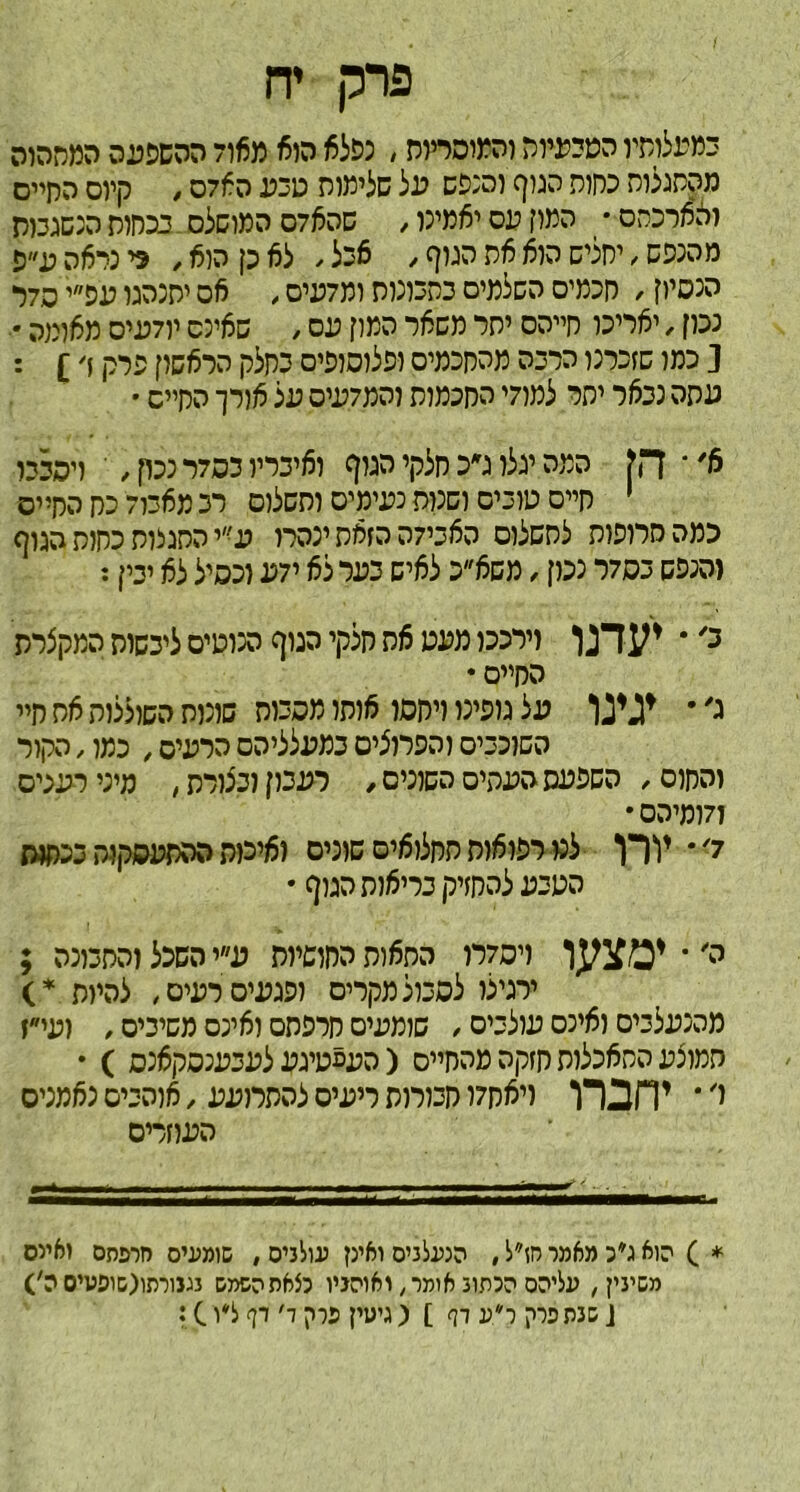 פרק יח
במעלותיו הטבעיות והמוסריות, נפלא הוא מאוד ההשפעה המתהוה
מהתגלות כחות הגוף והנפש על שלימות טבע האדם, קיום החיים
והארכתם. המון עם יאמינו, שהאדם המושלם בכחות הנשגבות
מהנפש, יחליש הוא את הגוף, אבל, לא כן הוא, כי נראה ע"פ
הנסיון, חכמים השלמים בתבונות ומדעים, אם יתנהגו עפ"י סדר
נכון, יאריכו חייהם יתר משאר המון עם, שאינם יודעים מאומה.
[ כמו שזכרנו הרבה מהחכמים ופלוסופים בחלק הראשון פרק ו' ] :
עתה נבאר יתר למודי החכמות והמדעים על אורך החיים.
א'. הן המה יגלו ג"כ חלקי הגוף ואיבריו בסדר נכון, ויסבבו
חיים טובים ושנות נעימים ותשלום רב מאבוד כח החיים
כמה תרופות לתשלום האבידה הזאת ינהרו ע"י התגלות כחות הגוף
והנפש בסדר נכון, משא"כ לאיש בער לא ידע וכסיל לא יבין :
ב'. יעדנו וירככו מעט את חלקי הגוף הנוטים ליבשות המקצרת
החיים.
ג'. יגינו על גופינו ויחסו אותו מסבות שונות השוללות את חיי
השוככים והפרוצים במעלליהם הרעים, כמו, הקור
והחום, השפעת העתים השונים, רעבון ובצורת, מיני רעבים
ודומיהם.
ד'. יורו לנו רפואות תחלואים שונים ואיכות ההתעסקות בכחות
הטבע להחזיק בריאות הגוף.
ה'. ימצעו ויסדרו התאות החושיות ע"י השכל והתבונה ;
ירגילו לסבול מקרים ופגעים רעים, להיות *)
מהנעלבים ואינם עולבים, שומעים חרפתם ואינם משיבים, ועי"ז
תמולע התאכלות חזקה מהחיים ( העפטיגע לעבענסקאנס ) .
ו'. יחברו ויאחדו חבורות ריעים להתרועע, אוהבים נאמנים
העוזרים
*) הוא ג"כ מאמר חז"ל, הנעלבים ואינן עולבים, שומעים חרפתם ואינם
משיבין, עליהם הכתוב אומר, ואוהביו כצאת השמש בגבורתו (שופטים ה')
[ שבת פרק ר"ע דף ] ( גיטין פרק ד' דף ל"ו ) :